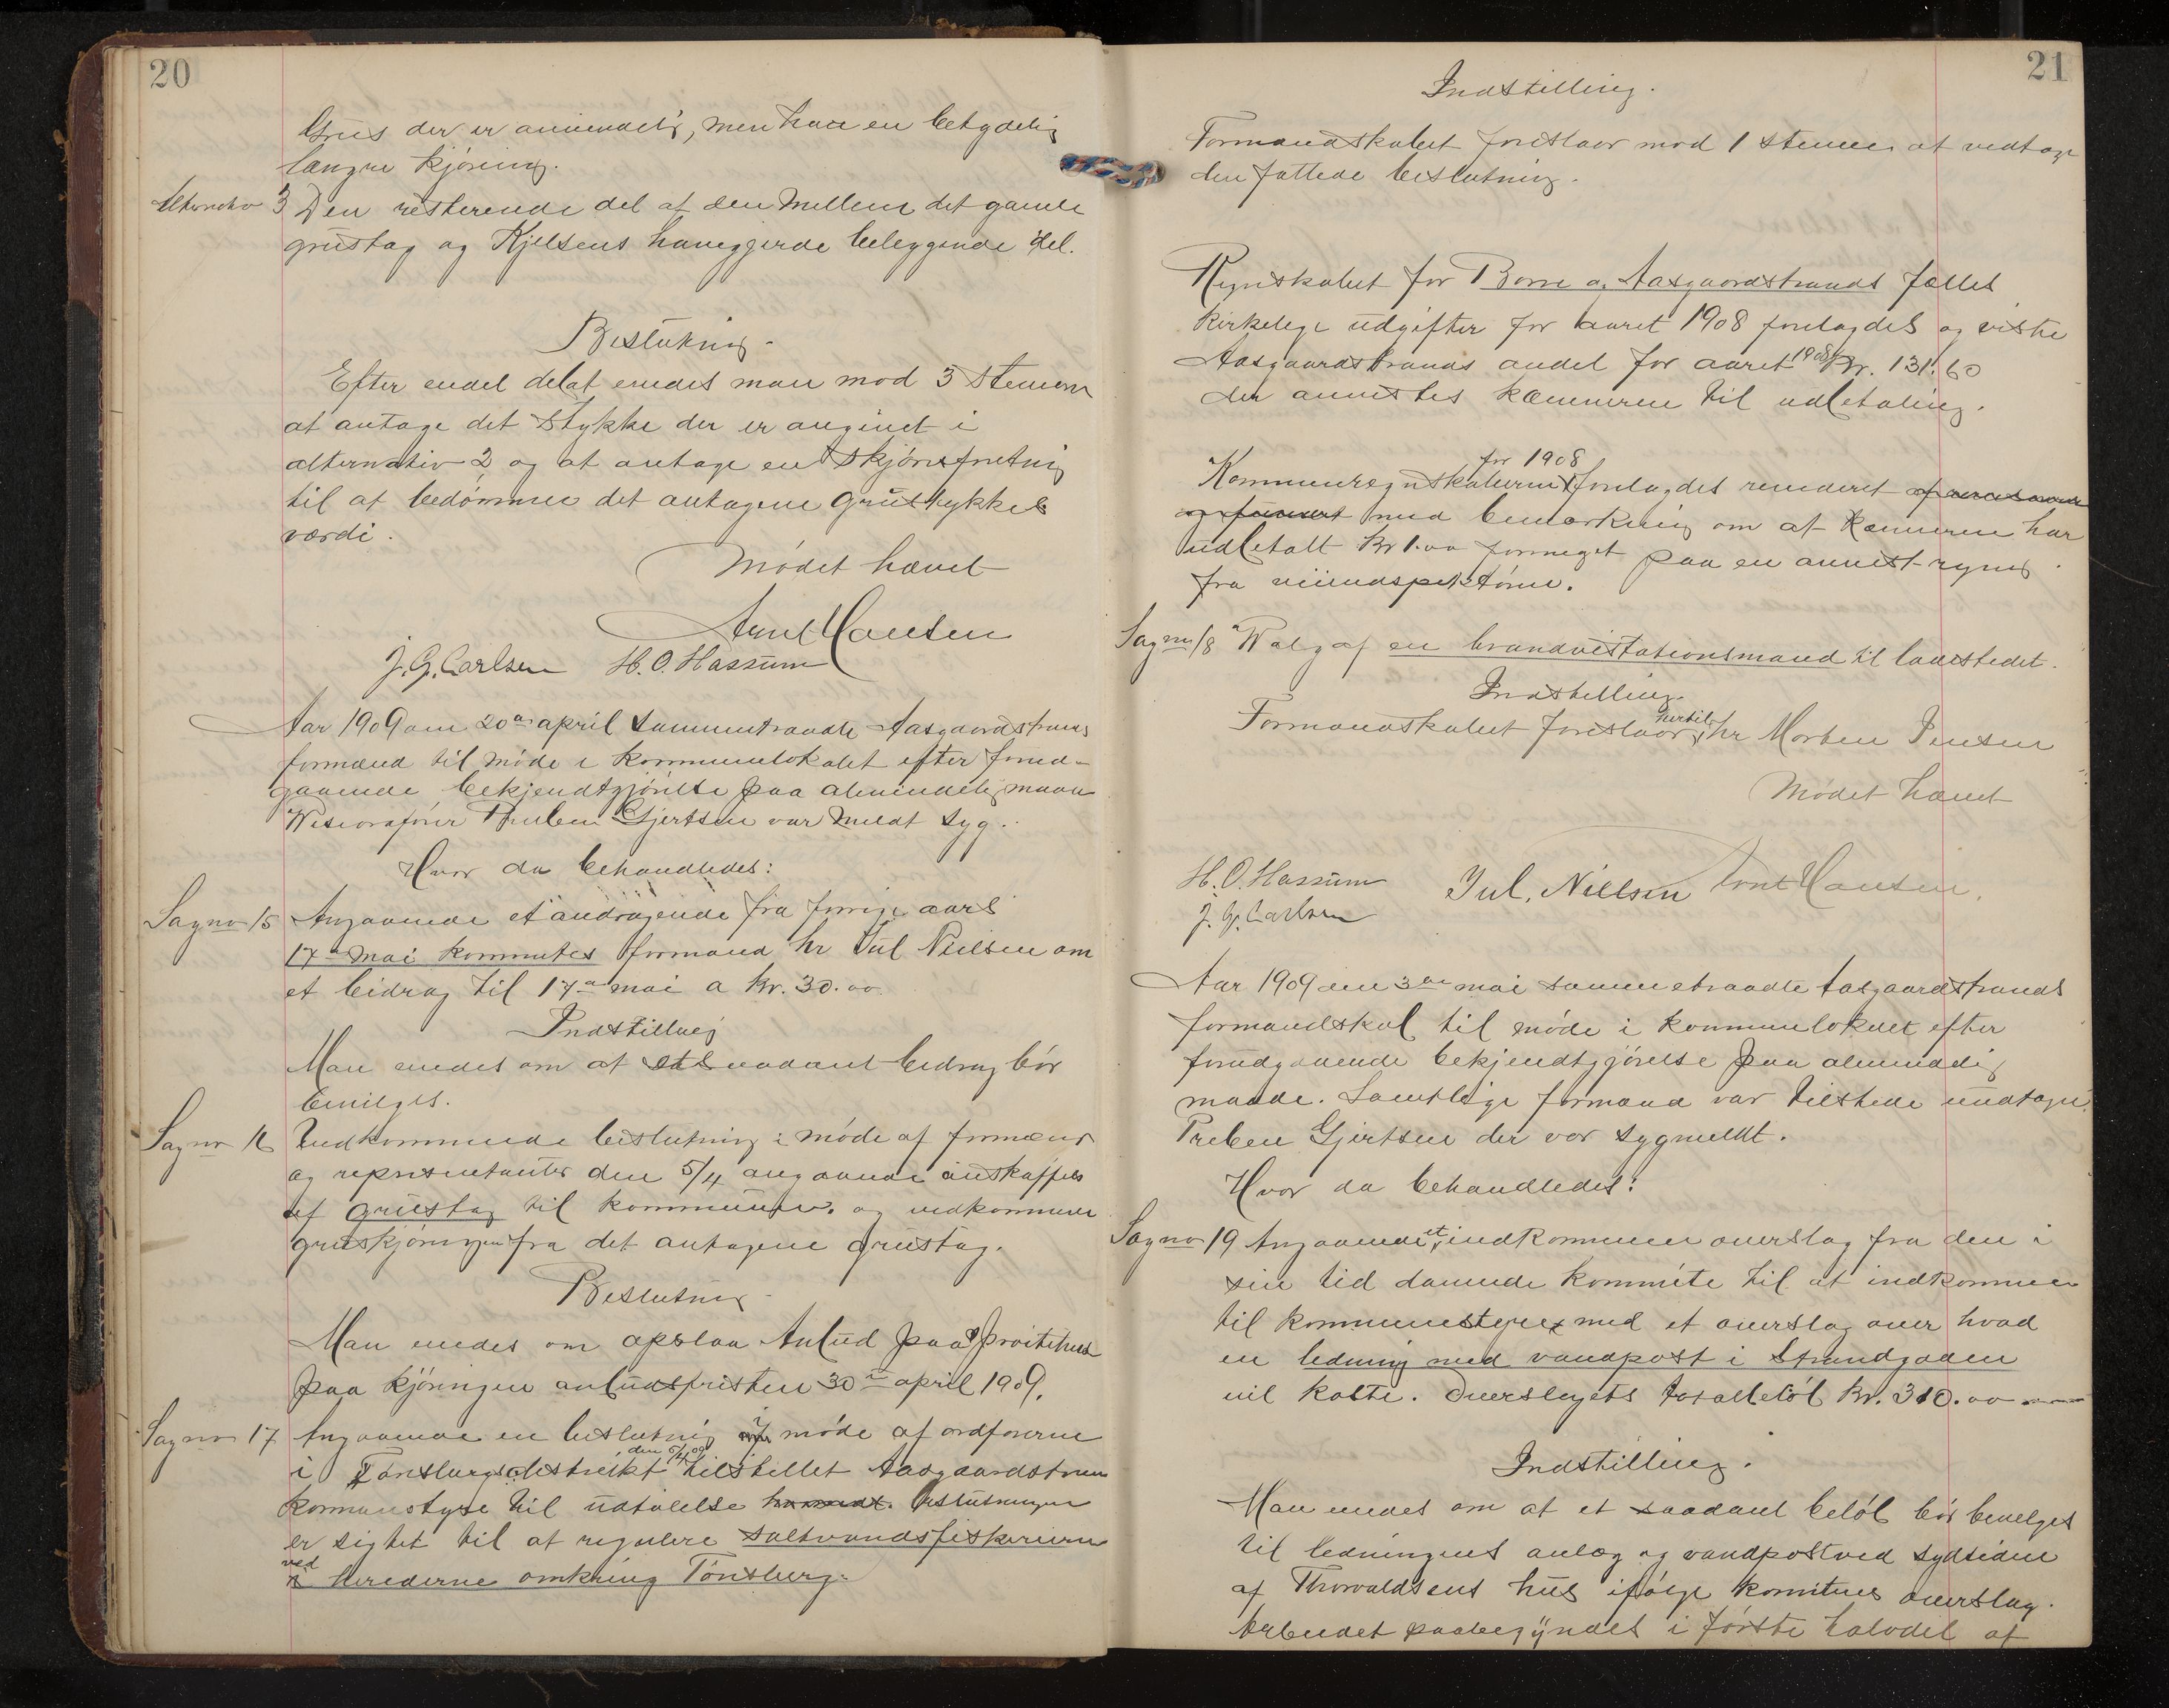 20
Grus der er anvendelig, men har en betydelig
længre kjøring.
Alternativ 3 Den resterende del af den mellem det gamle
grustag og Kjelsens havegjerde beliggende del.
Beslutning.
Efter endel debat enedes man mod 3 stemmer
at antage det stykke der er anginet i
alternativ 2 og at antage en skjønsfretning
til at bedømme det antagene grustykkes
værdi.
Mødet hævet
Arnt Hansen
J. G. Carlsen H. O. Hassum
Aar 1909 den 20de april sammentraadte Aasgaardstrands
formænd til møde i kommunelokalet efter forud-
gaaende bekjendtgjørelse paa almindelig maade
Viseordfører Preben Gjertsen var meldt syg.
Hvor da behandledes:
Sag no 15 Angaaende et andragende fra forrige aars
17de mai kommites formand hr Jul Nielsen om
et bidrag til 17de mai a kr. 30.00
Indstilling
Man enedes om at et saadant bidrag bør
bevilges.
Sag no 16 Indkommende beslutning i møde af formænd
og repræsentanter den 5/4 angaaende anskaffelse
af grustag til kommunen. og vedkommende
gruskjøringen fra det antagene grustag.
Beslutning
Man enedes om opslaa Anbud paa
paa kjøringen anbudsfristen 30te april 1909.
Sag no 17 Angaaende en beslutning i møde af ordførerne
i Tønsbergs distrikt den 5/4 09 tilstillet Aasgaardstrands
kommunestyre til udtalelse beslutningen
er sigtet til at regulere saltvandsfiskerierne
ved herederne omkring Tønsberg.
21
Indstilling.
Formandskabet foreslaar mod 1 stemme at vedtage
den fattede beslutning.
Regnskabet for Borre og Aasgaardstrands fælles
kirkelige udgifter for aaret 1908 forelagdes og viste
Aasgaardstrands andel for aaret 1908 Kr. 131.60
der anvistes kæmneren til udbetaling.
Kommuneregnskaberne for 1908 forelagdes revideret
med bemærkning om at Kæmneren har
udbetalt Kr 1.00 formeget paa en anvist regning
fra
Sag no 18 Valg af en brandvisitationsmand til ladestedet.
Indstilling.
Formandskabet foreslaar hertil hr Morten Jensen
Mødet hævet
H. O. Hassum Jul. Nielsen Arnt Hansen.
J. G. Carlsen
Aar 1909 den 3die mai sammentraadte Aasgaardstrands
formandskab til møde i kommunelokalet efter
forudgaaende bekjendtgjørelse paa almindelig
maade. Samtlige formænd var tilstede undtagen
Preben Gjertsen der var sygmeldt.
Hvor da behandledes:
Sag no 19 Angaaende et indkommen overslag fra den i
sin tid dannede kommite til at indkomme
til kommunestyre med et overslag over hvad
en ledning med vandpost i Strandgaden
vil koste. Overslagets totalbeløb Kr. 310.00
Indstilling.
Man enedes om at et saadant beløb bør bevilges
til ledningens anlæg og vandpost ved sydsiden
af Thorvaldsens hus ifølge komitees overslag.
Arbeidet paabegyndes i første halvdel af